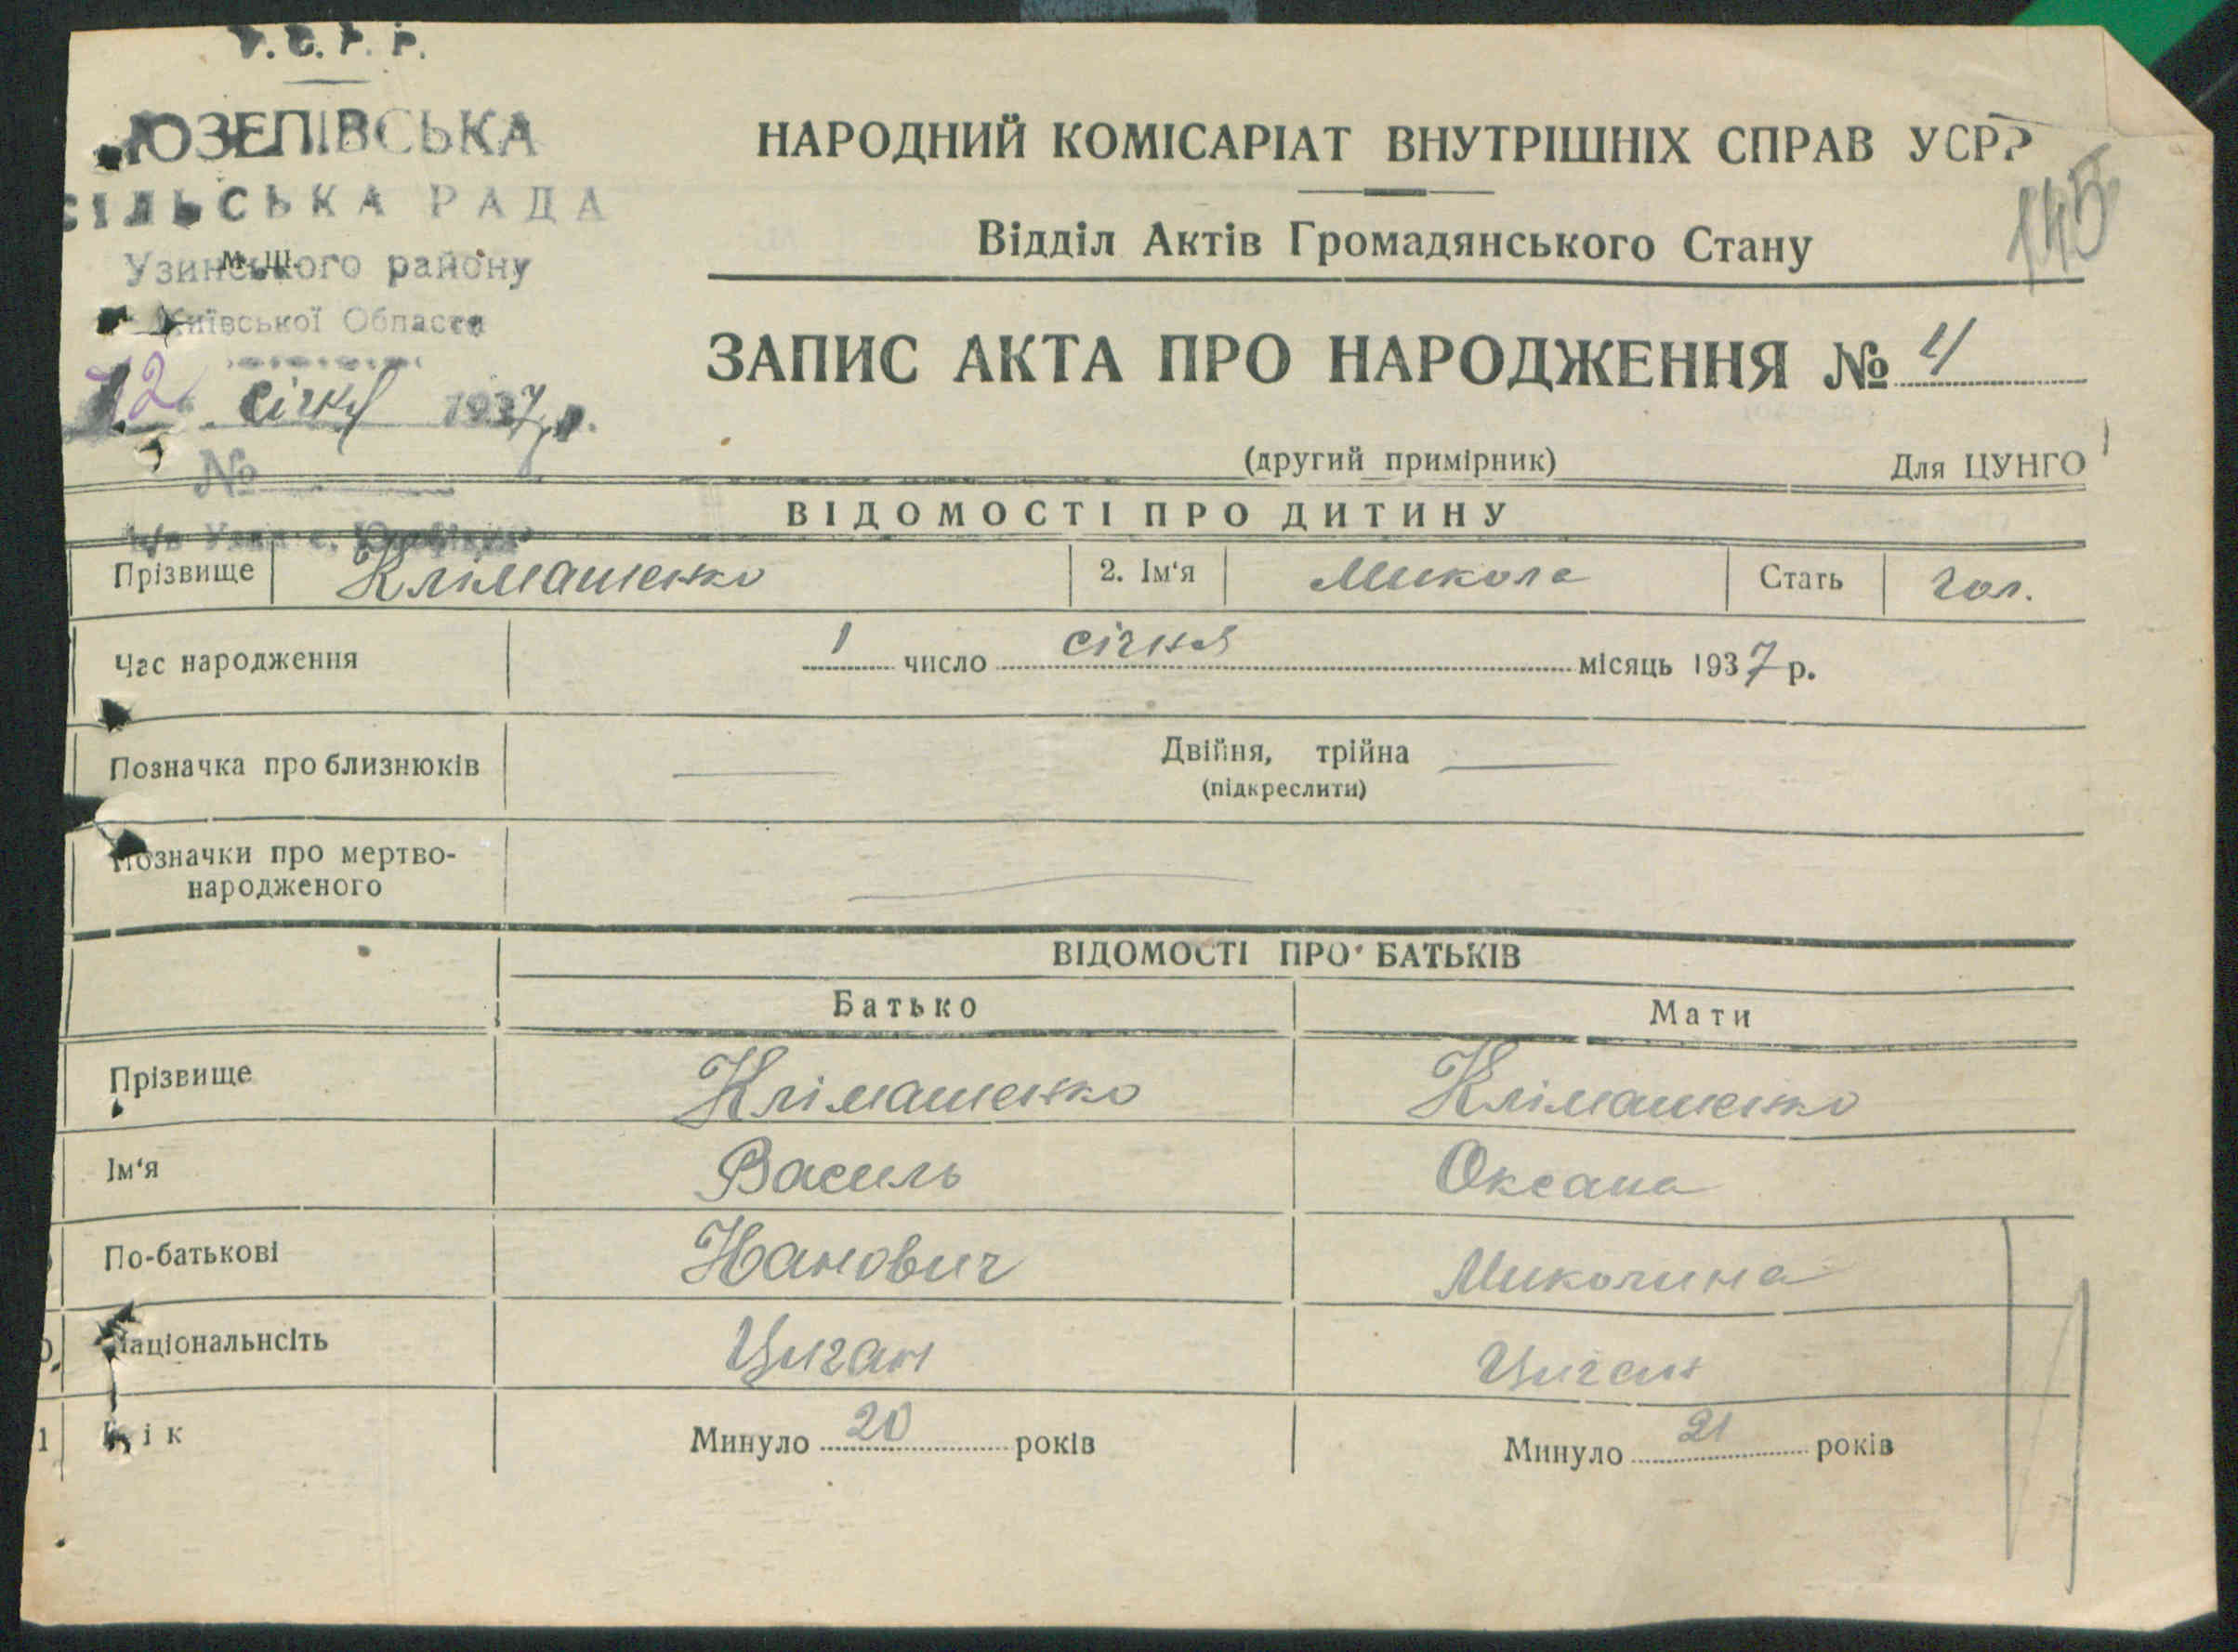 У.С.Р.Р.
ЮЗЕПІВСЬКА
СІЛЬСЬКА РАДА
Узинського району
М. Ш.
Київської Области
12 січня 1937 р.
№
НАРОДНИЙ КОМІСАРІАТ ВНУТРІШНІХ СПРАВ УСРР
145
Відділ Актів Громадянського Стану
ЗАПИС АКТА ПРО НАРОДЖЕННЯ № 4
(другий примірник) Для ЦУНГО
ВІДОМОСТІ ПРО ДИТИНУ
Прізвище Клімашенко 2. Ім‘я Микола Стать чол.
Час народження 1 число січня місяць 1937 р.
Позначка про близнюків Двійня, трійна
(підкреслити)
Позначки про мертво-
народженого
ВІДОМОСТІ ПРО БАТЬКІВ
Батько Мати
Прізвище Клімашенко Клімашенко
Ім‘я Василь Оксана
По-батькові Іванович Миколина
Національнсіть Циган Циган
Вік Минуло 20 років Минуло 21 років